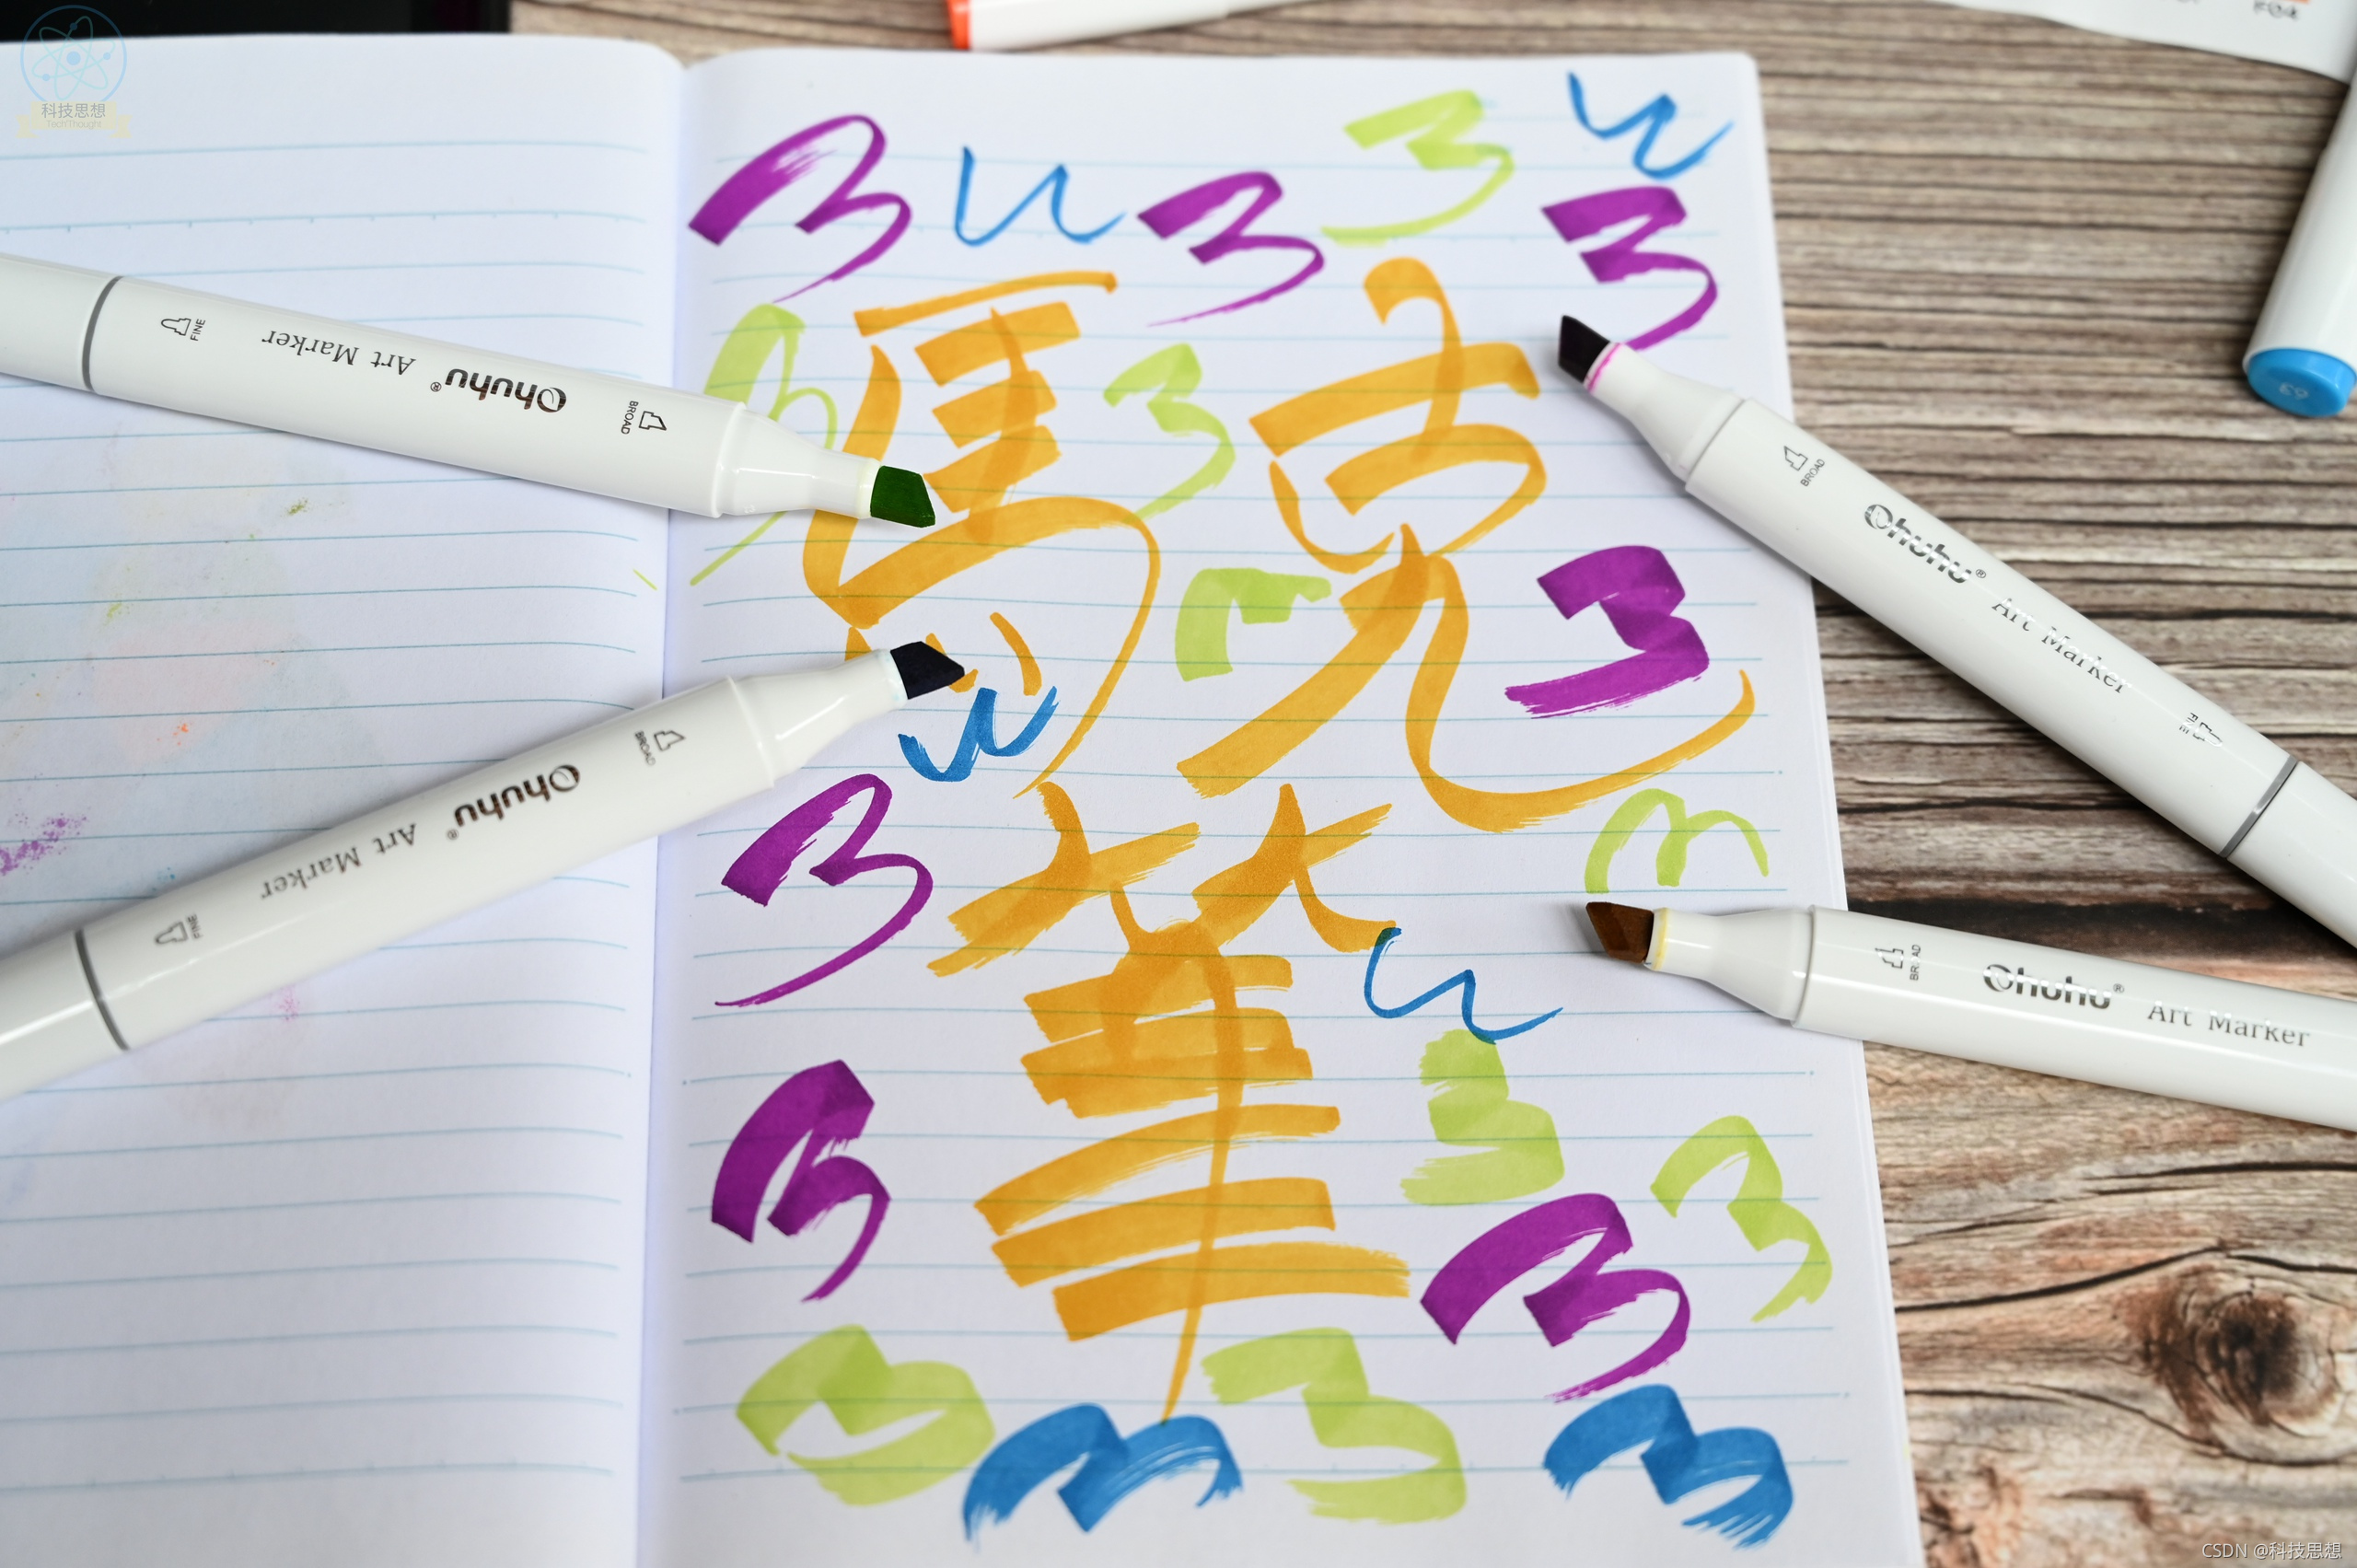 科技思想
TechThought
馬克
筆
3 3 3 3
3
3
3
3
3
3 3
3
3
FINE
Art Marker
Ohuhu®
BROAD
BROAD
Ohuhu®
Art Marker
FINE
BROAD
Ohuhu®
Art Marker
FINE
BROAD
Ohuhu®
Art Marker
63
CSDN @科技思想